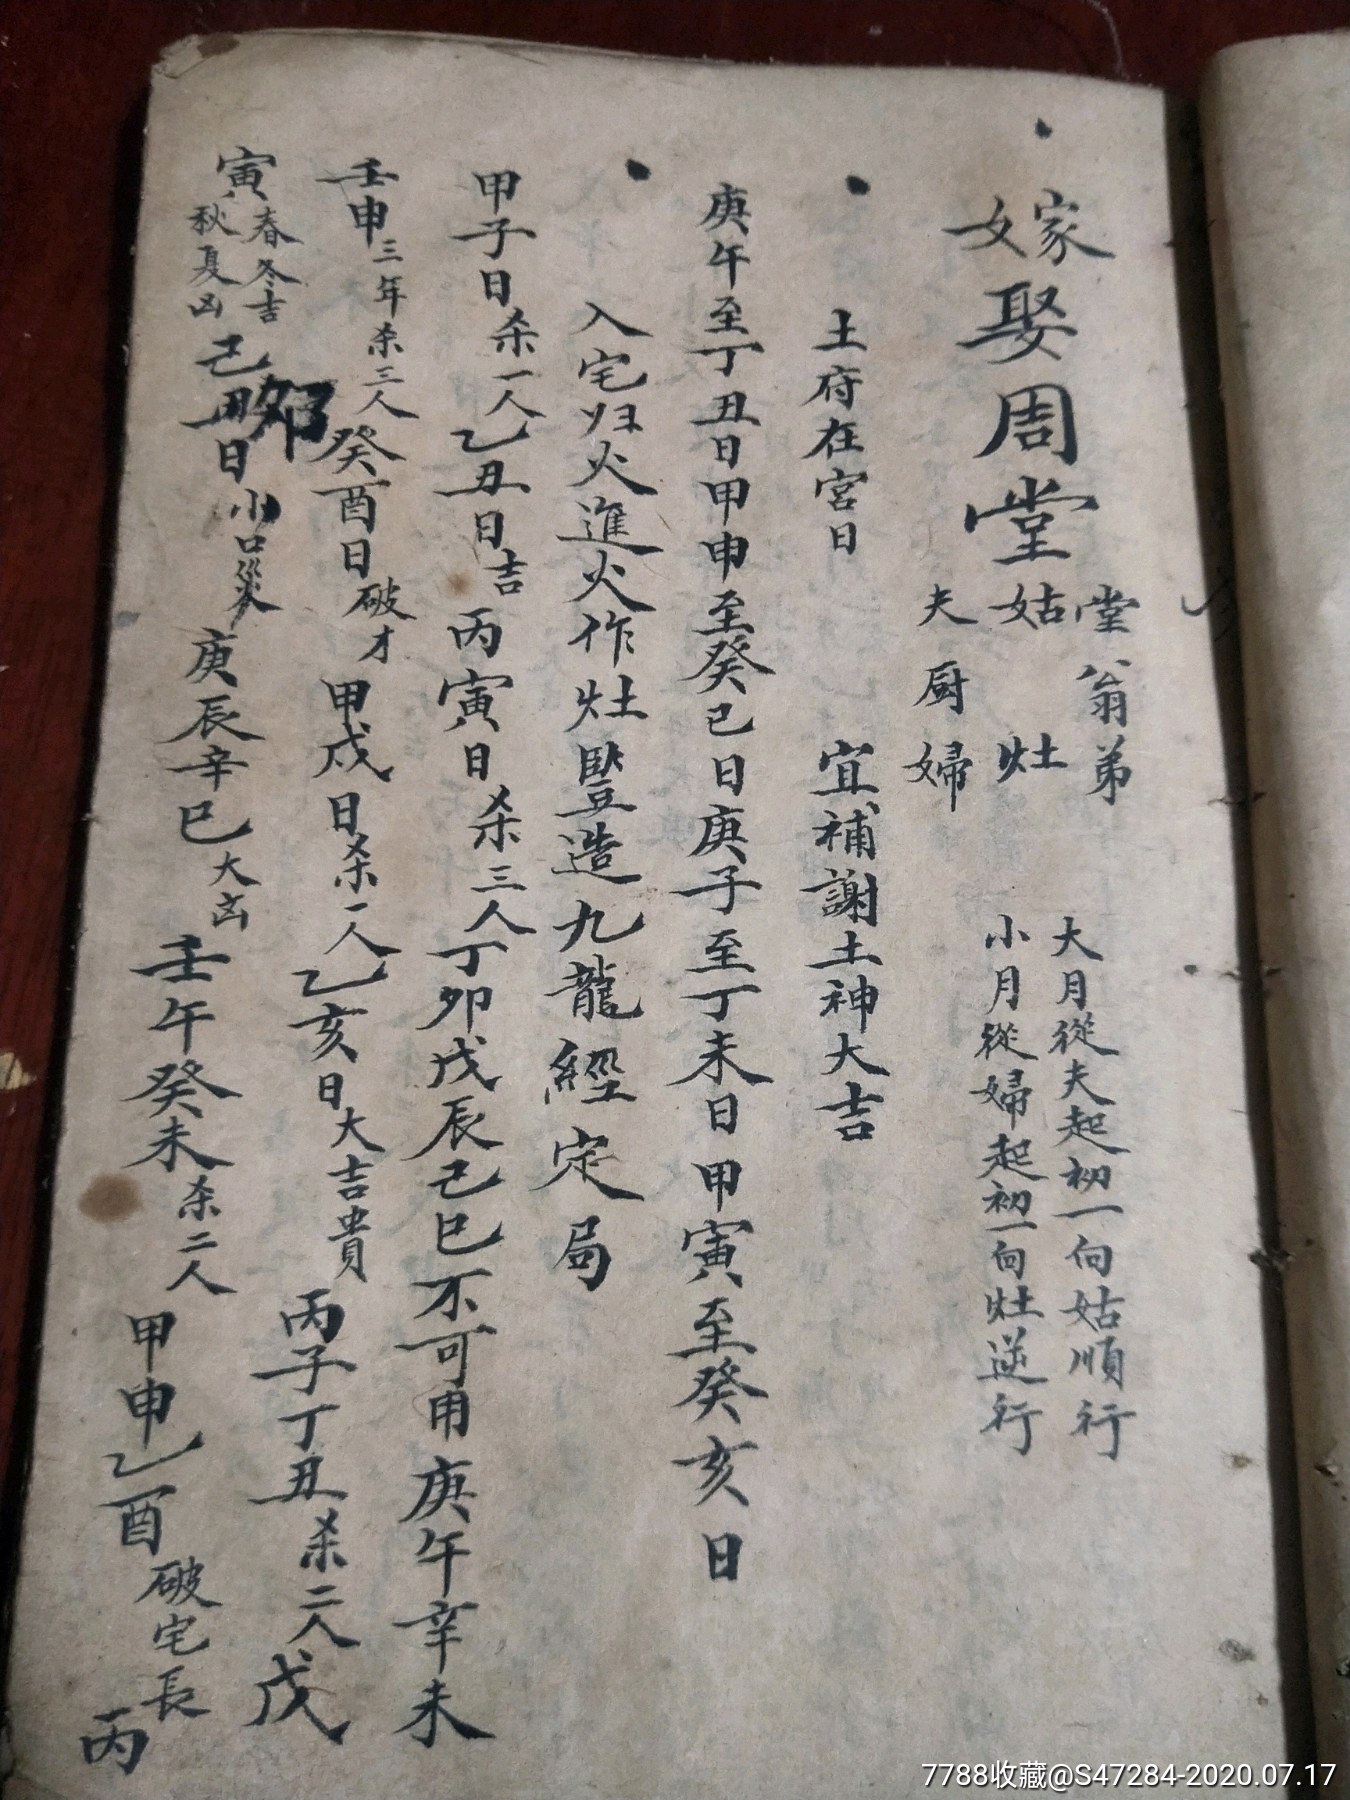 嫁娶周堂
堂翁弟
姑灶
夫厨婦
大月從夫起初一向姑順行
小月從婦起初一向灶逆行
土府在宮日 宜補謝土神大吉
庚午至丁丑日甲申至癸巳日庚子至丁未日甲寅至癸亥日
入宅归火進火作灶豎造九龍經定局
甲子日杀一人乙丑日吉丙寅日杀三人丁卯戊辰己巳不可用庚午辛未
壬申三年杀三人癸酉日破才甲戌日杀一人乙亥日大吉貴丙子丁丑杀二人戊
寅春冬吉秋夏凶己卯日小口災庚辰辛巳大凶壬午癸未杀二人甲申乙酉破宅長丙
7788收藏@S47284-2020.07.17